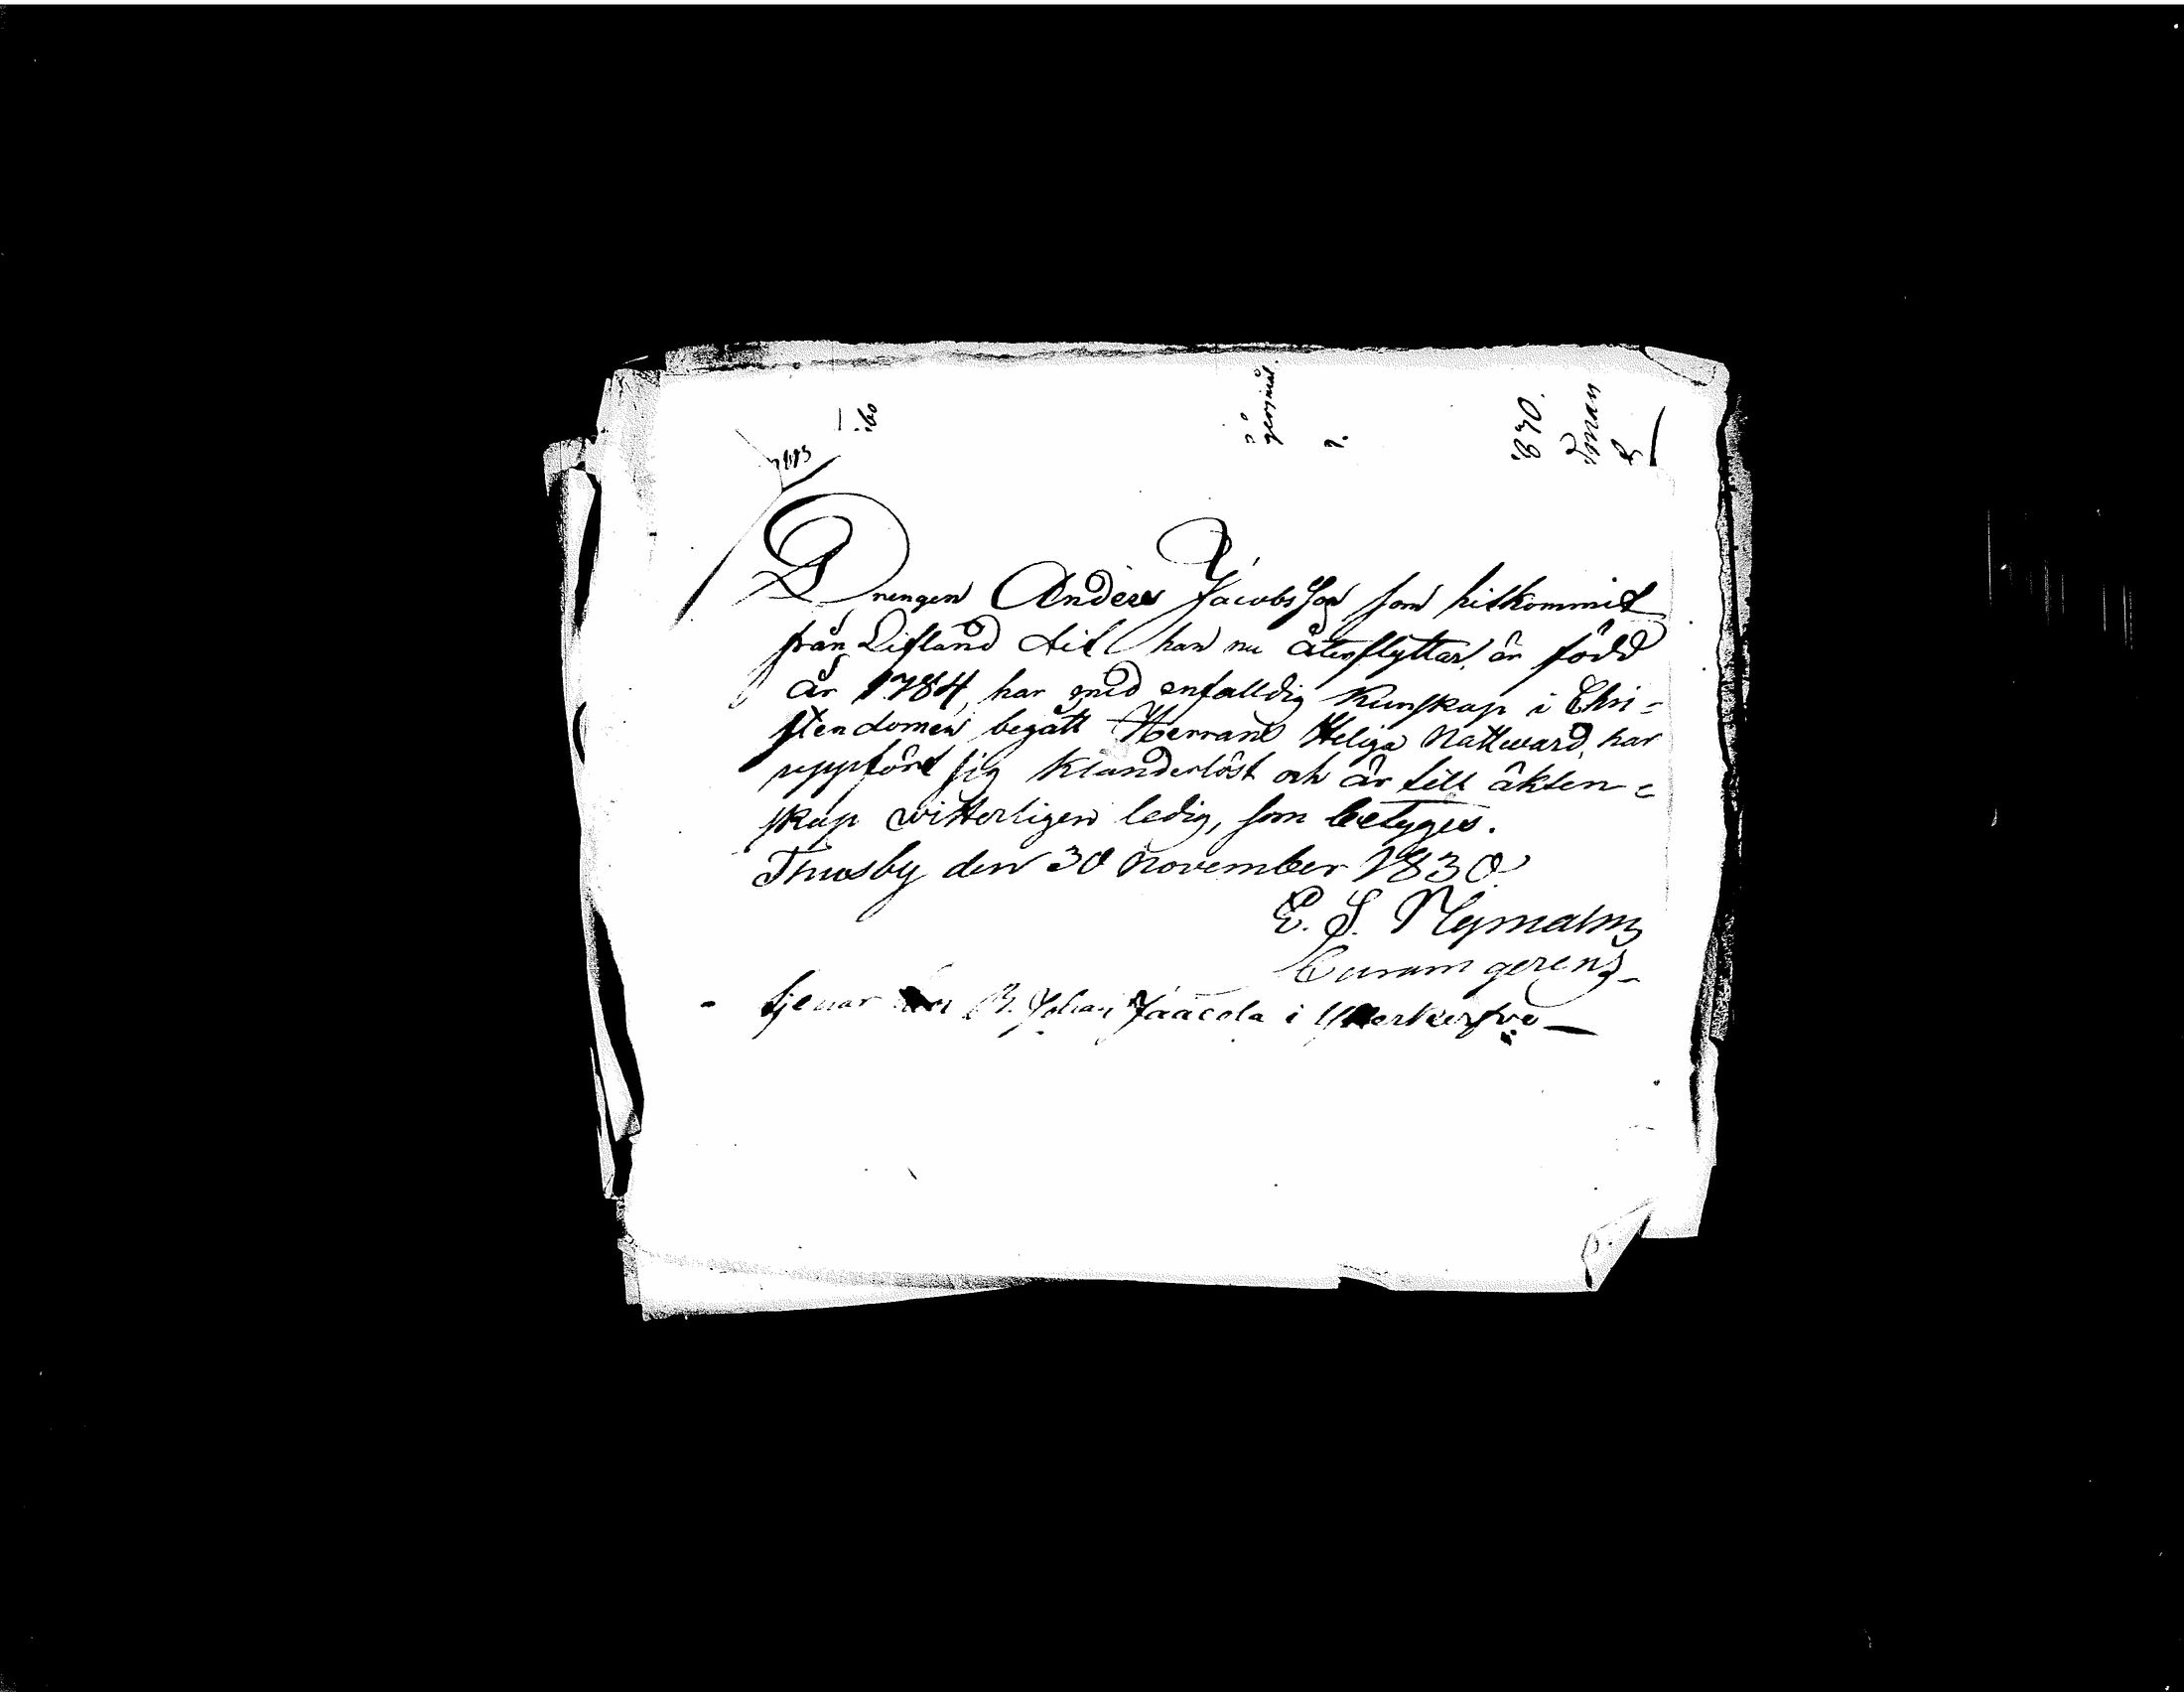 Drengen Anders Jacobsson som hitkommit
från Lifland dit han nu återflyttar, är född
år 1784, har med enfalldig kunskap i Chri-
stendomen begått Herrans Heliga Nattward, har
uppfört sig klanderlöst och är till äkten-
skap witterligen ledig, som betyges.
Thusby den 30 November 1830
E. S. Nymalm
Curam gerens
tjenar hos B. Johan Jaacola i